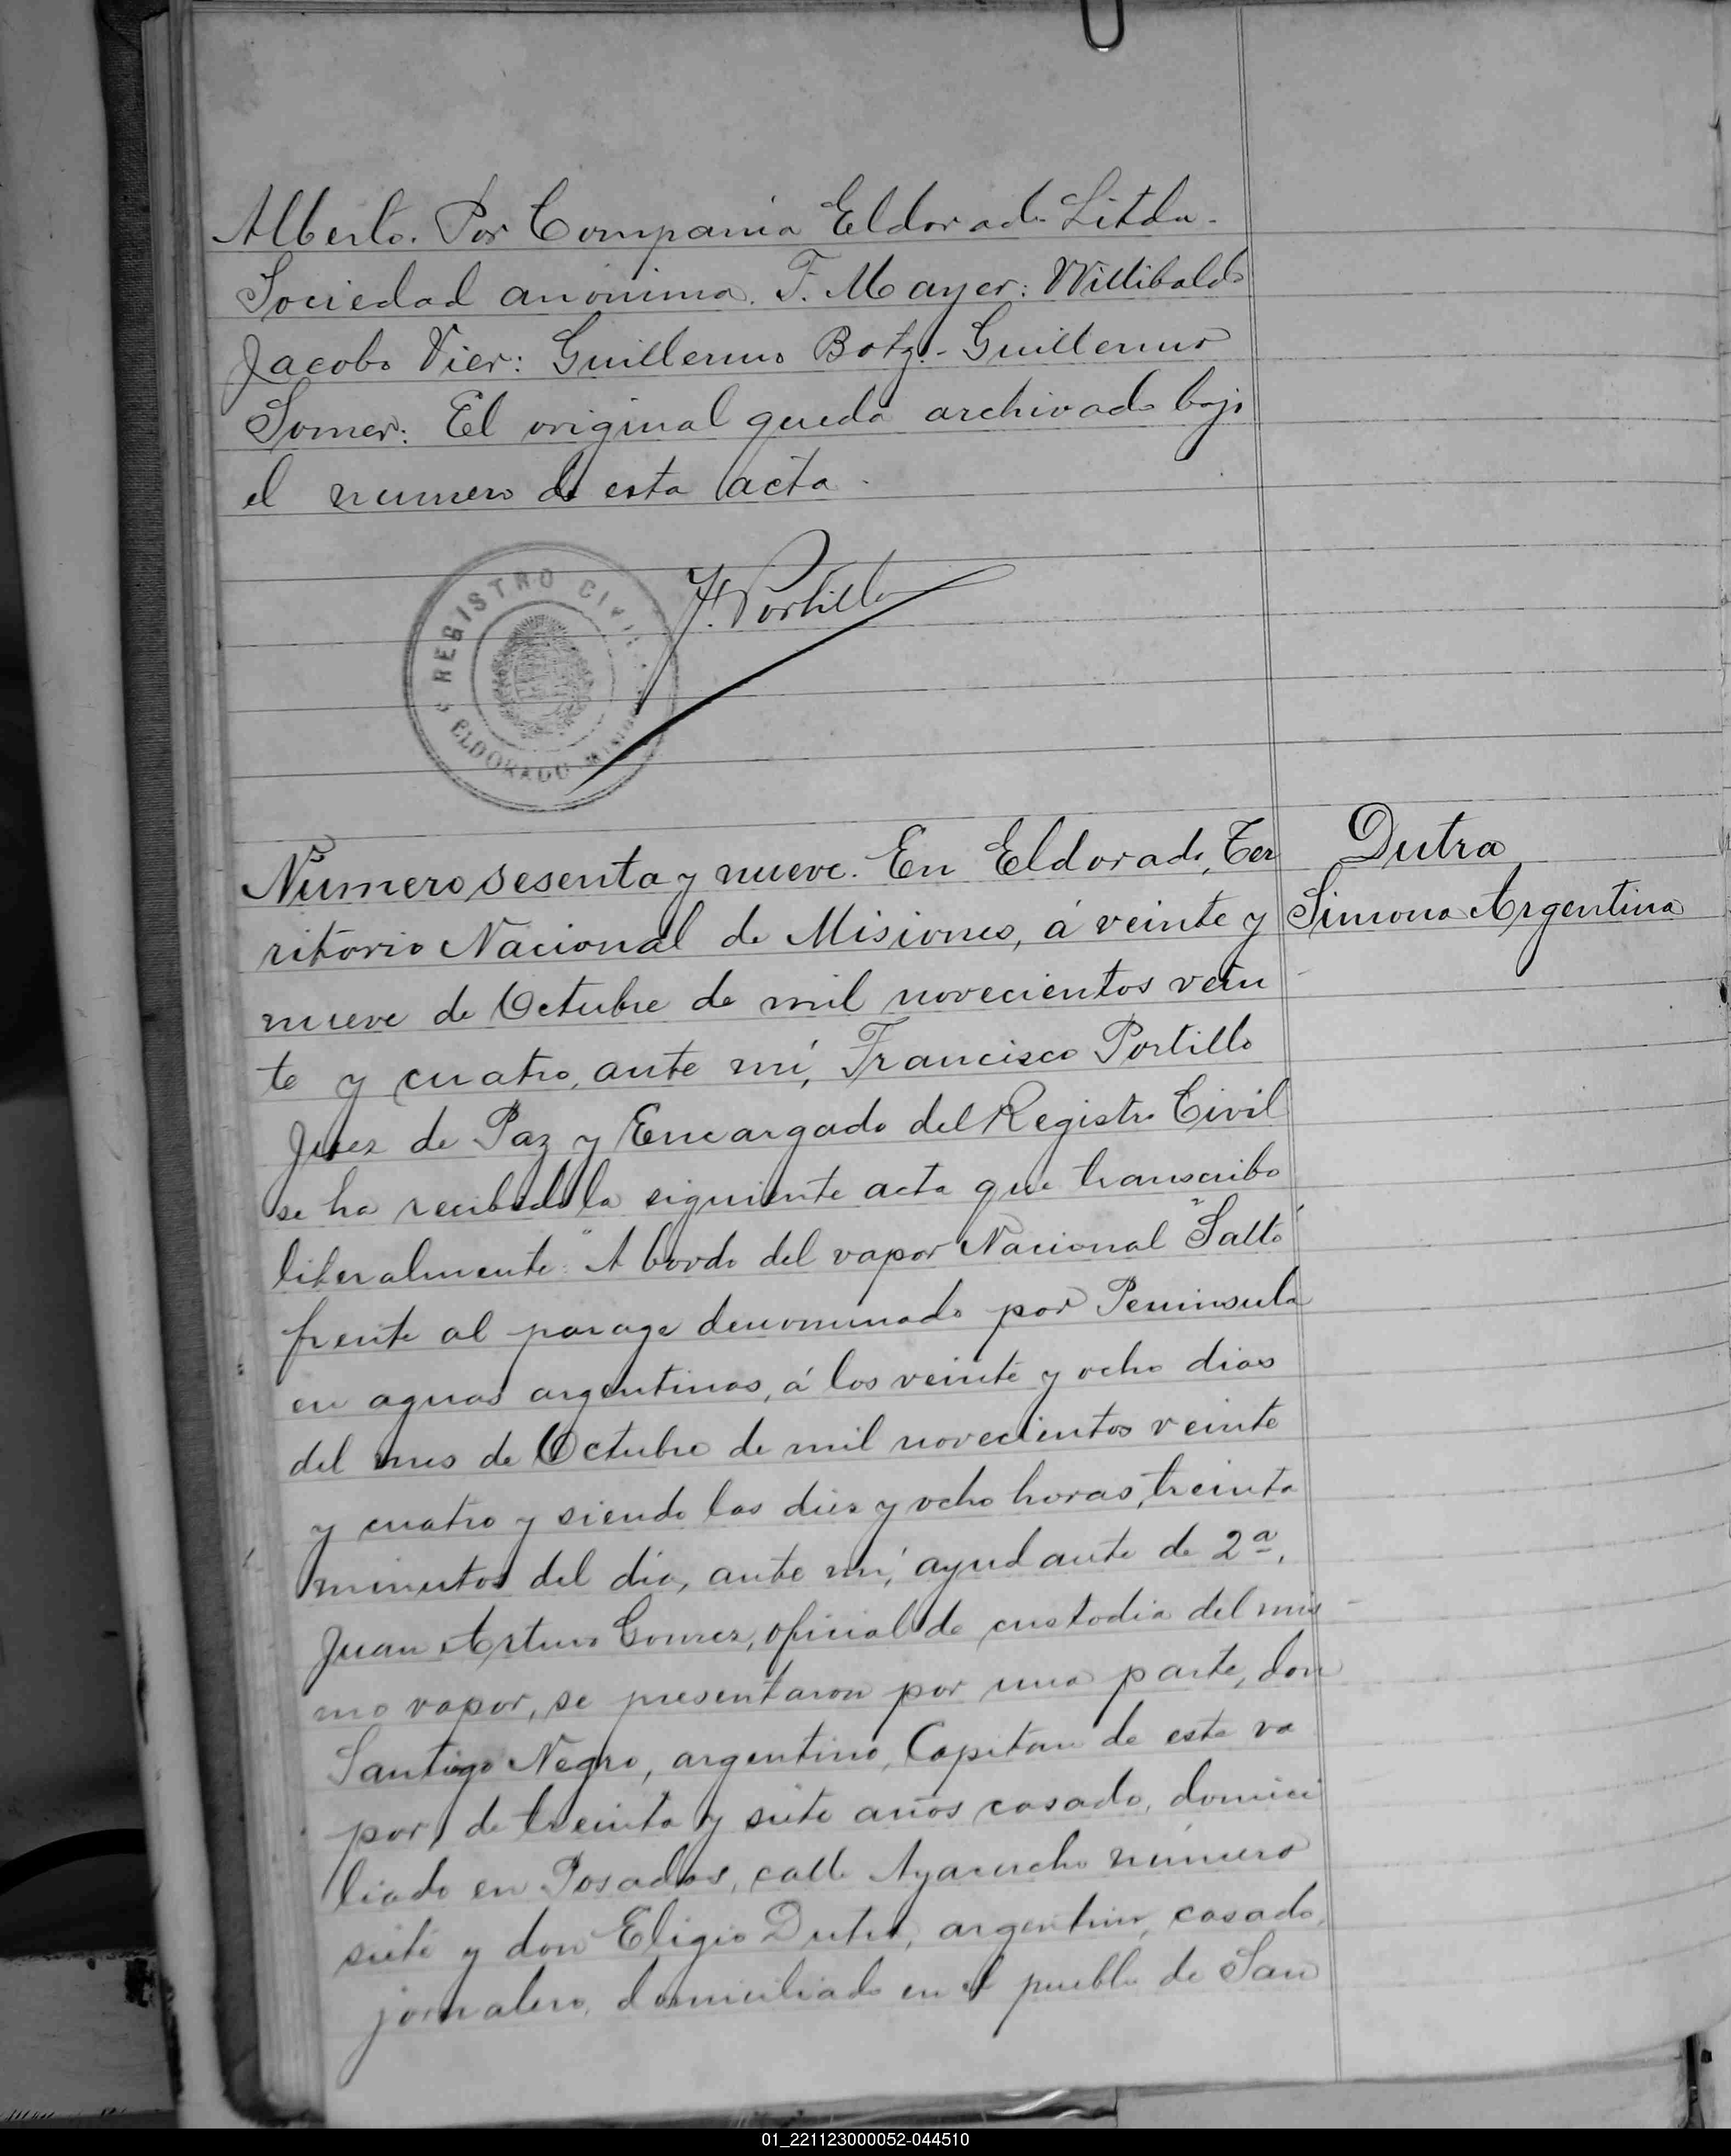 Alberto. Por Compania Eldorado Litda.
Sociedad anonima. F. Mayer: Willibaldo
Jacobo Vier: Guillermo Botz.- Guillermo
Somer: El original queda archivado bajo
el numero de esta acta.
F. Portillo
REGISTRO CIVIL
ELDORADO MISIONES
Número sesenta y nueve. En Eldorado, Ter
Dutra
ritorio Nacional de Misiones, á veinte y
Simona Argentina
nueve de Octubre de mil novecientos vein
te y cuatro, ante mí, Francisco Portillo
Juez de Paz y Encargado del Registro Civil
se ha recibido la siguiente acta que transcribo
literalmente: "A bordo del vapor Nacional "Salto"
frente al parage denominado por Peninsula
en aguas argentinas, á los veinte y ocho dias
del mes de Octubre de mil novecientos veinte
y cuatro y siendo las diez y ocho horas, treinta
minutos del dia, ante mí, ayudante de 2ª,
Juan Arturo Gomez, oficial de custodia del mis
mo vapor, se presentaron por una parte, don
Santigo Negro, argentino, Capitan de este va
por, de treinta y siete años casado, domici
liado en Posadas, calle Ayacucho número
siete y don Eligio Dutra, argentino, casado,
jornalero, domiciliado en el pueblo de San
01_221123000052-044510